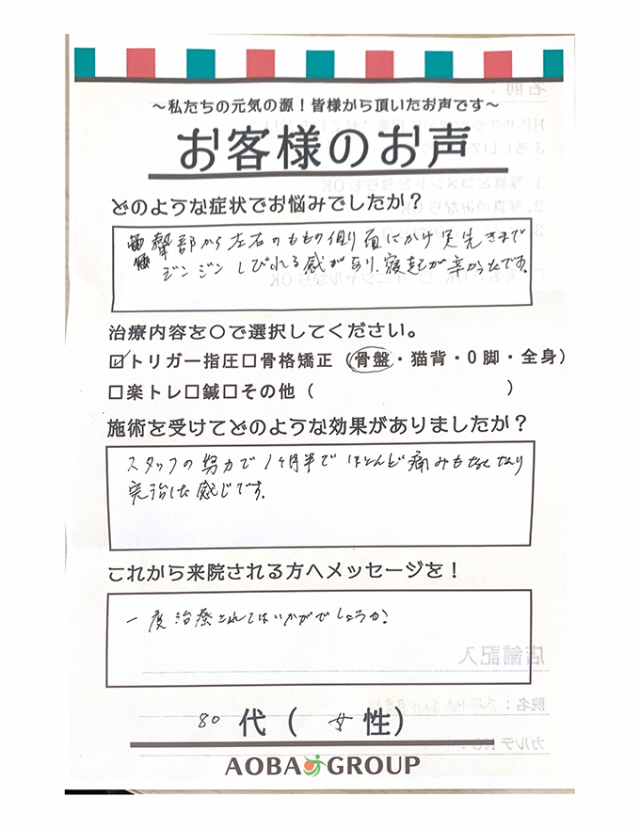 ～私たちの元気の源！皆様から頂いたお声です～
お客様のお声
どのような症状でお悩みでしたか？
臀部から左右のももの側面にかけ足先まで
ジンジンしびれる感があり、寝起が辛かったです。
治療内容を〇で選択してください。
☑トリガー指圧□骨格矯正（骨盤・猫背・O脚・全身）
□楽トレ□鍼□その他（　　　）
施術を受けてどのような効果がありましたか？
スタッフの努力で1ヶ月半でほとんど痛みもなくなり
完治した感じです。
これから来院される方へメッセージを！
一度治療されてはいかがでしょうか？
80代（女性）
AOBA GROUP
名前：
1. 写真とコメントどちらもOK
2. 写真のみならOK
店舗記入
院名：
カルテNo